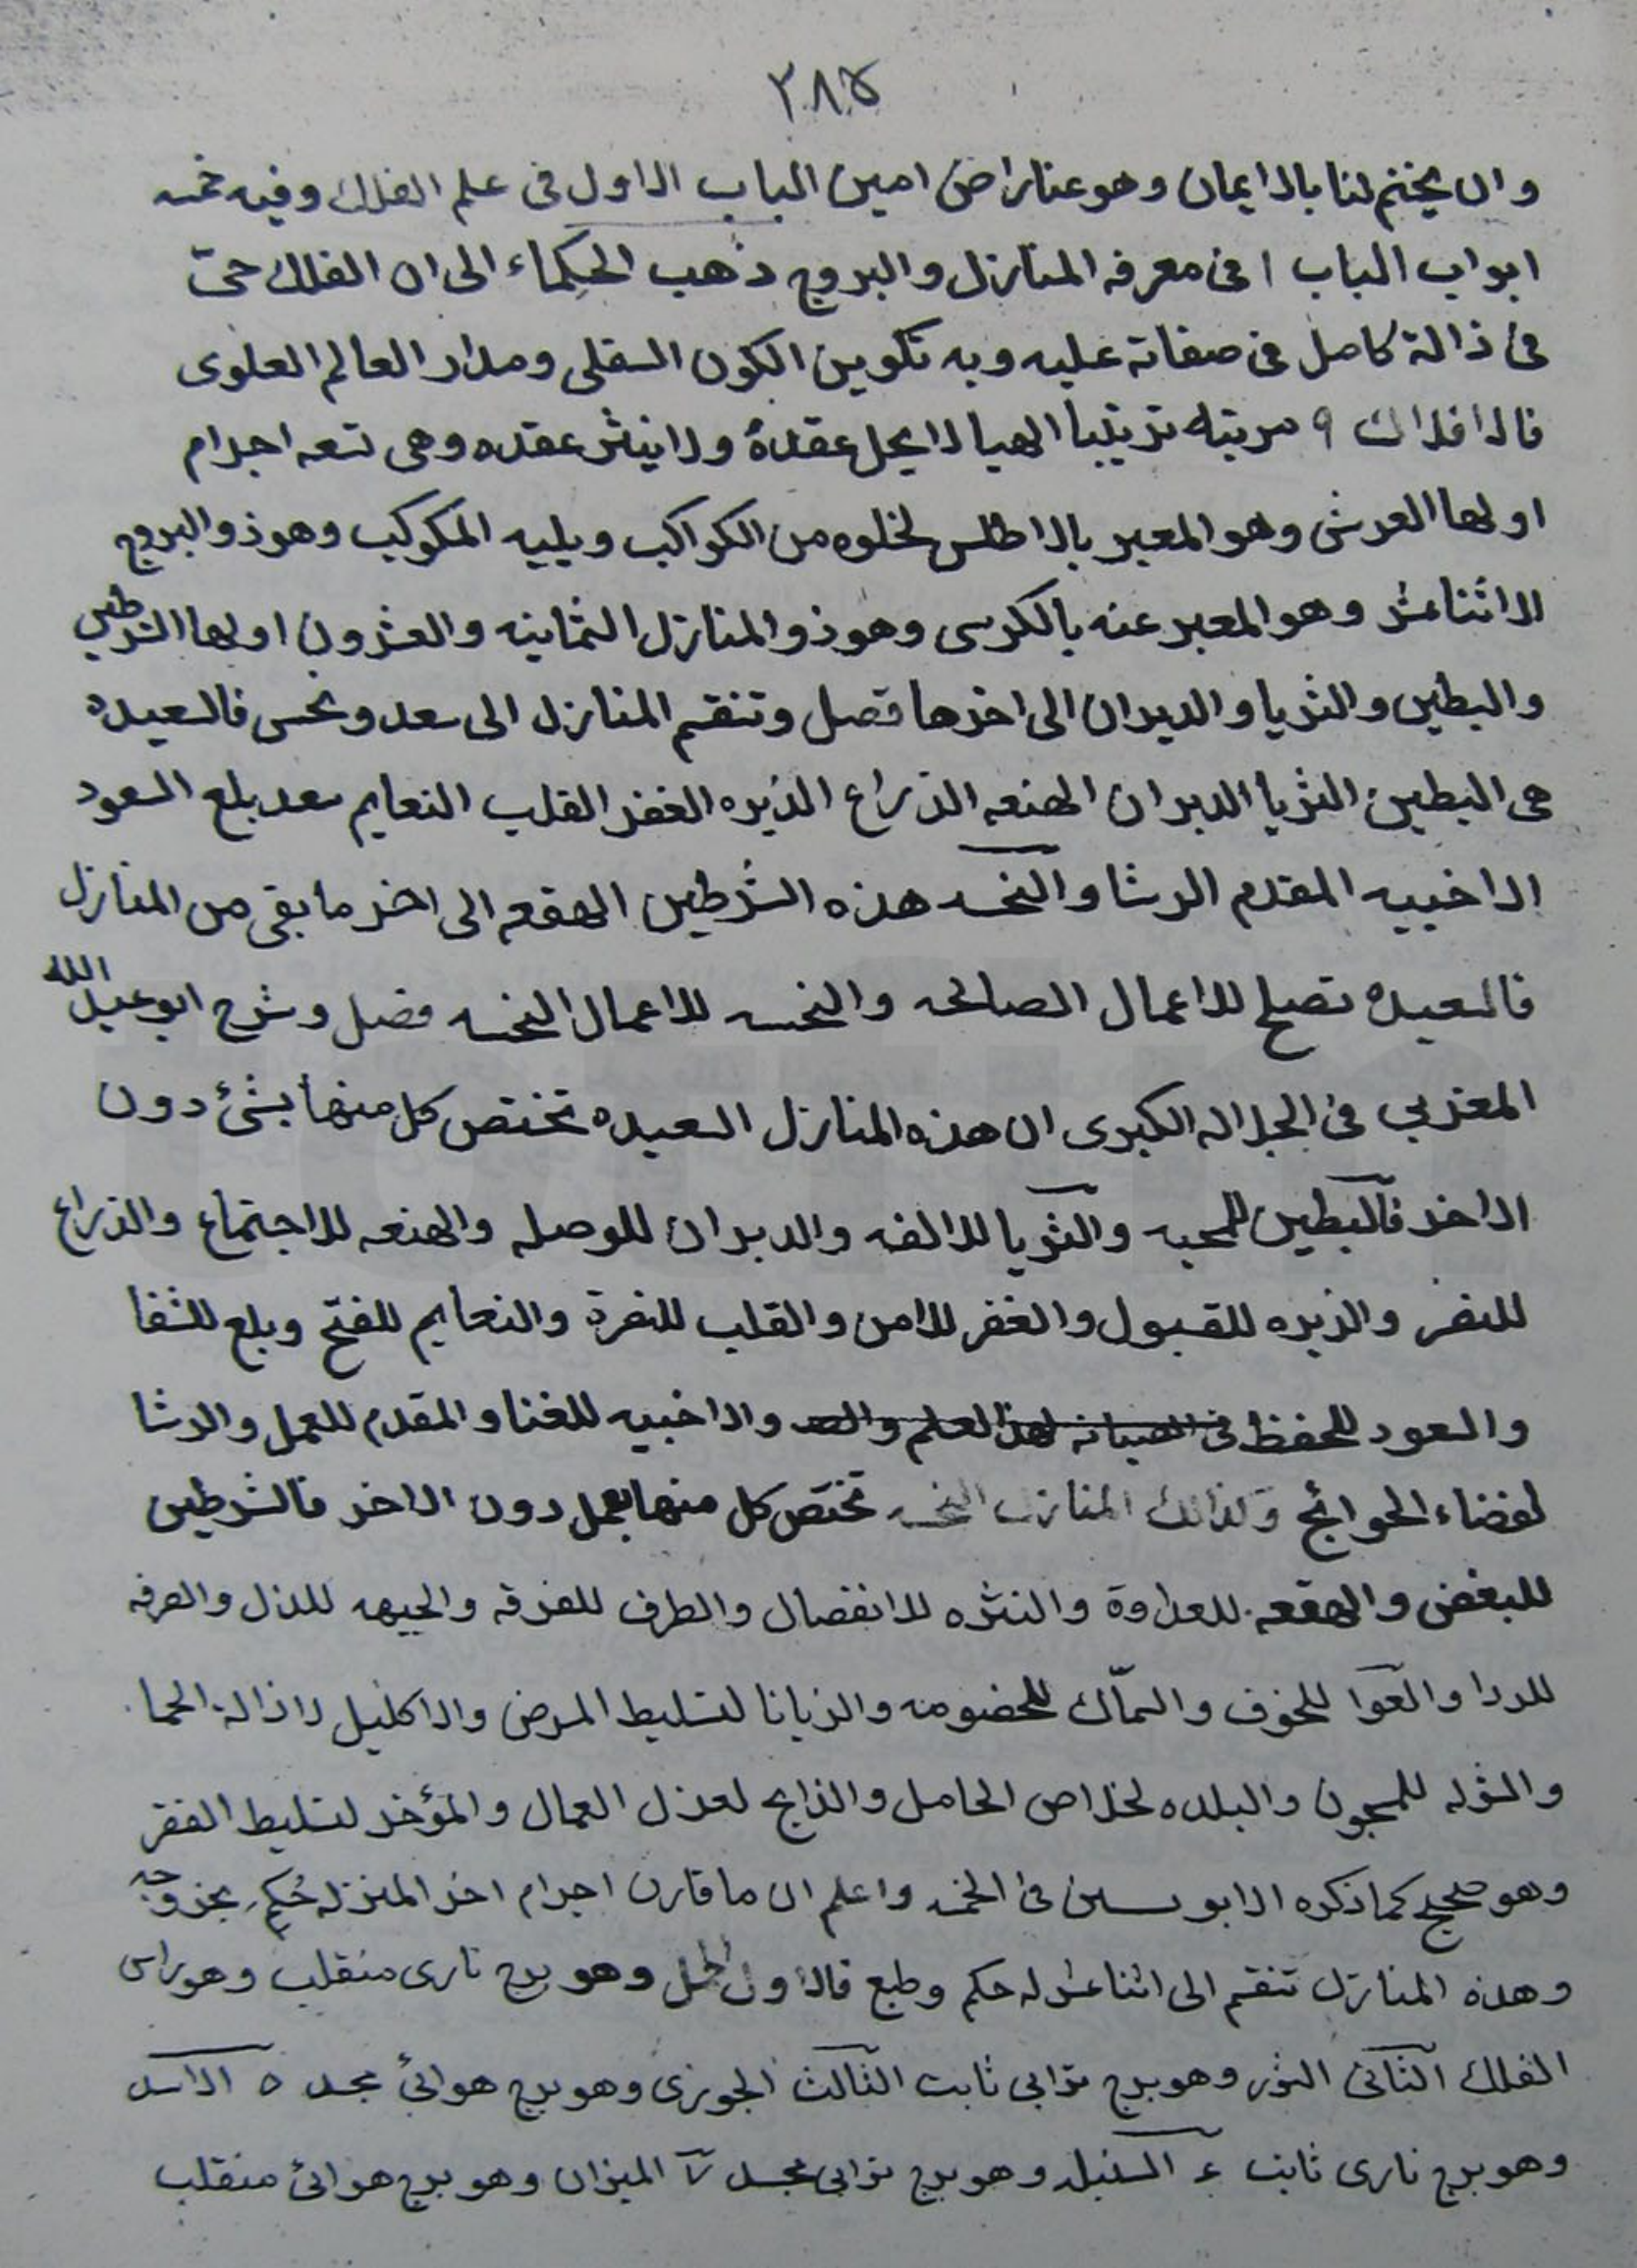 ٣٨٥
وان يختم لنا بالايمان وهو عنا راض امين الباب الاول فى علم الفلك وفيه خمسه
ابواب الباب ١ فى معرفه المنازل والبروج ذهب الحكماء الى ان الفلك حى
فى ذاته كامل فى صفاته عليه وبه تكوين الكون السفلى ومدار العالم العلوى
فالافلاك ٩ مرتبه ترتيبا الهيا لا يحل عقدة ولا ينثر عقده وهى تسعه اجرام
اولها العرش وهو المعبر بالاطلس لخلوه من الكواكب ويليه المكوكب وهو ذو البروج
الاثنا عشر وهو المعبر عنه بالكرسى وهو ذو المنازل الثمانيه والعشرون اولها الشرطين
والبطين والثريا والدبران الى اخرها فصل وتنقسم المنازل الى سعد ونحس فالسعيده
هى البطين الثريا الدبران الهنعه الذراع الزبره الغفر القلب النعايم سعد بلع السعود
الاخبيه المقدم الرشا والنحسه هذه الشرطين الهقعه الى اخر ما بقى من المنازل
فالسعيده تصلح للاعمال الصالحه والنحسه للاعمال النحسه فصل وشرح ابو عبد الله
المغربي فى الجلاله الكبرى ان هذه المنازل السعيده تختص كل منها بشئ دون
الاخر فالبطين للمحبه والثريا للالفه والدبران للوصله والهنعه للاجتماع والذراع
للنصر والزبره للقبول والغفر للامن والقلب للنصرة والنعايم للفتح وبلع للشفا
والسعود للحفظ فى الصيانه لهذا العلم والصد والاخبيه للغنا والمقدم للعمل والرشا
لقضاء الحوائج وكذالك المنازل النحسه تختص كل منها بعمل دون الاخر فالشرطين
للبغض والهقعه للعداوة والنثره للانفصال والطرف للفرقه والجبهه للذل والصرفه
للردا والعوا للخوف والسماك للخصومه والزبانا لتسليط المرض والاكليل لازالة الحما
والشوله للمسجون والبلده لخلاص الحامل والذابح لعزل العمال والمؤخر لتسليط الفقر
وهو صحيح كما ذكره الابو سين فى الخمسه واعلم ان ما قارن اجرام اخر المنزله حُكِم بخروجه
وهذه المنازل تنقسم الى اثنا عشر له حكم وطبع فالاول الحمل وهو برج نارى منقلب وهو راس
الفلك الثانى الثور وهو برج ترابي ثابت الثالث الجوزى وهو برج هوائئ مجسد ٥ الاسد
وهو برج نارى ثابت ٤ السنبله وهو برج ترابي مجسد ٧ الميزان وهو برج هوائئ منقلب